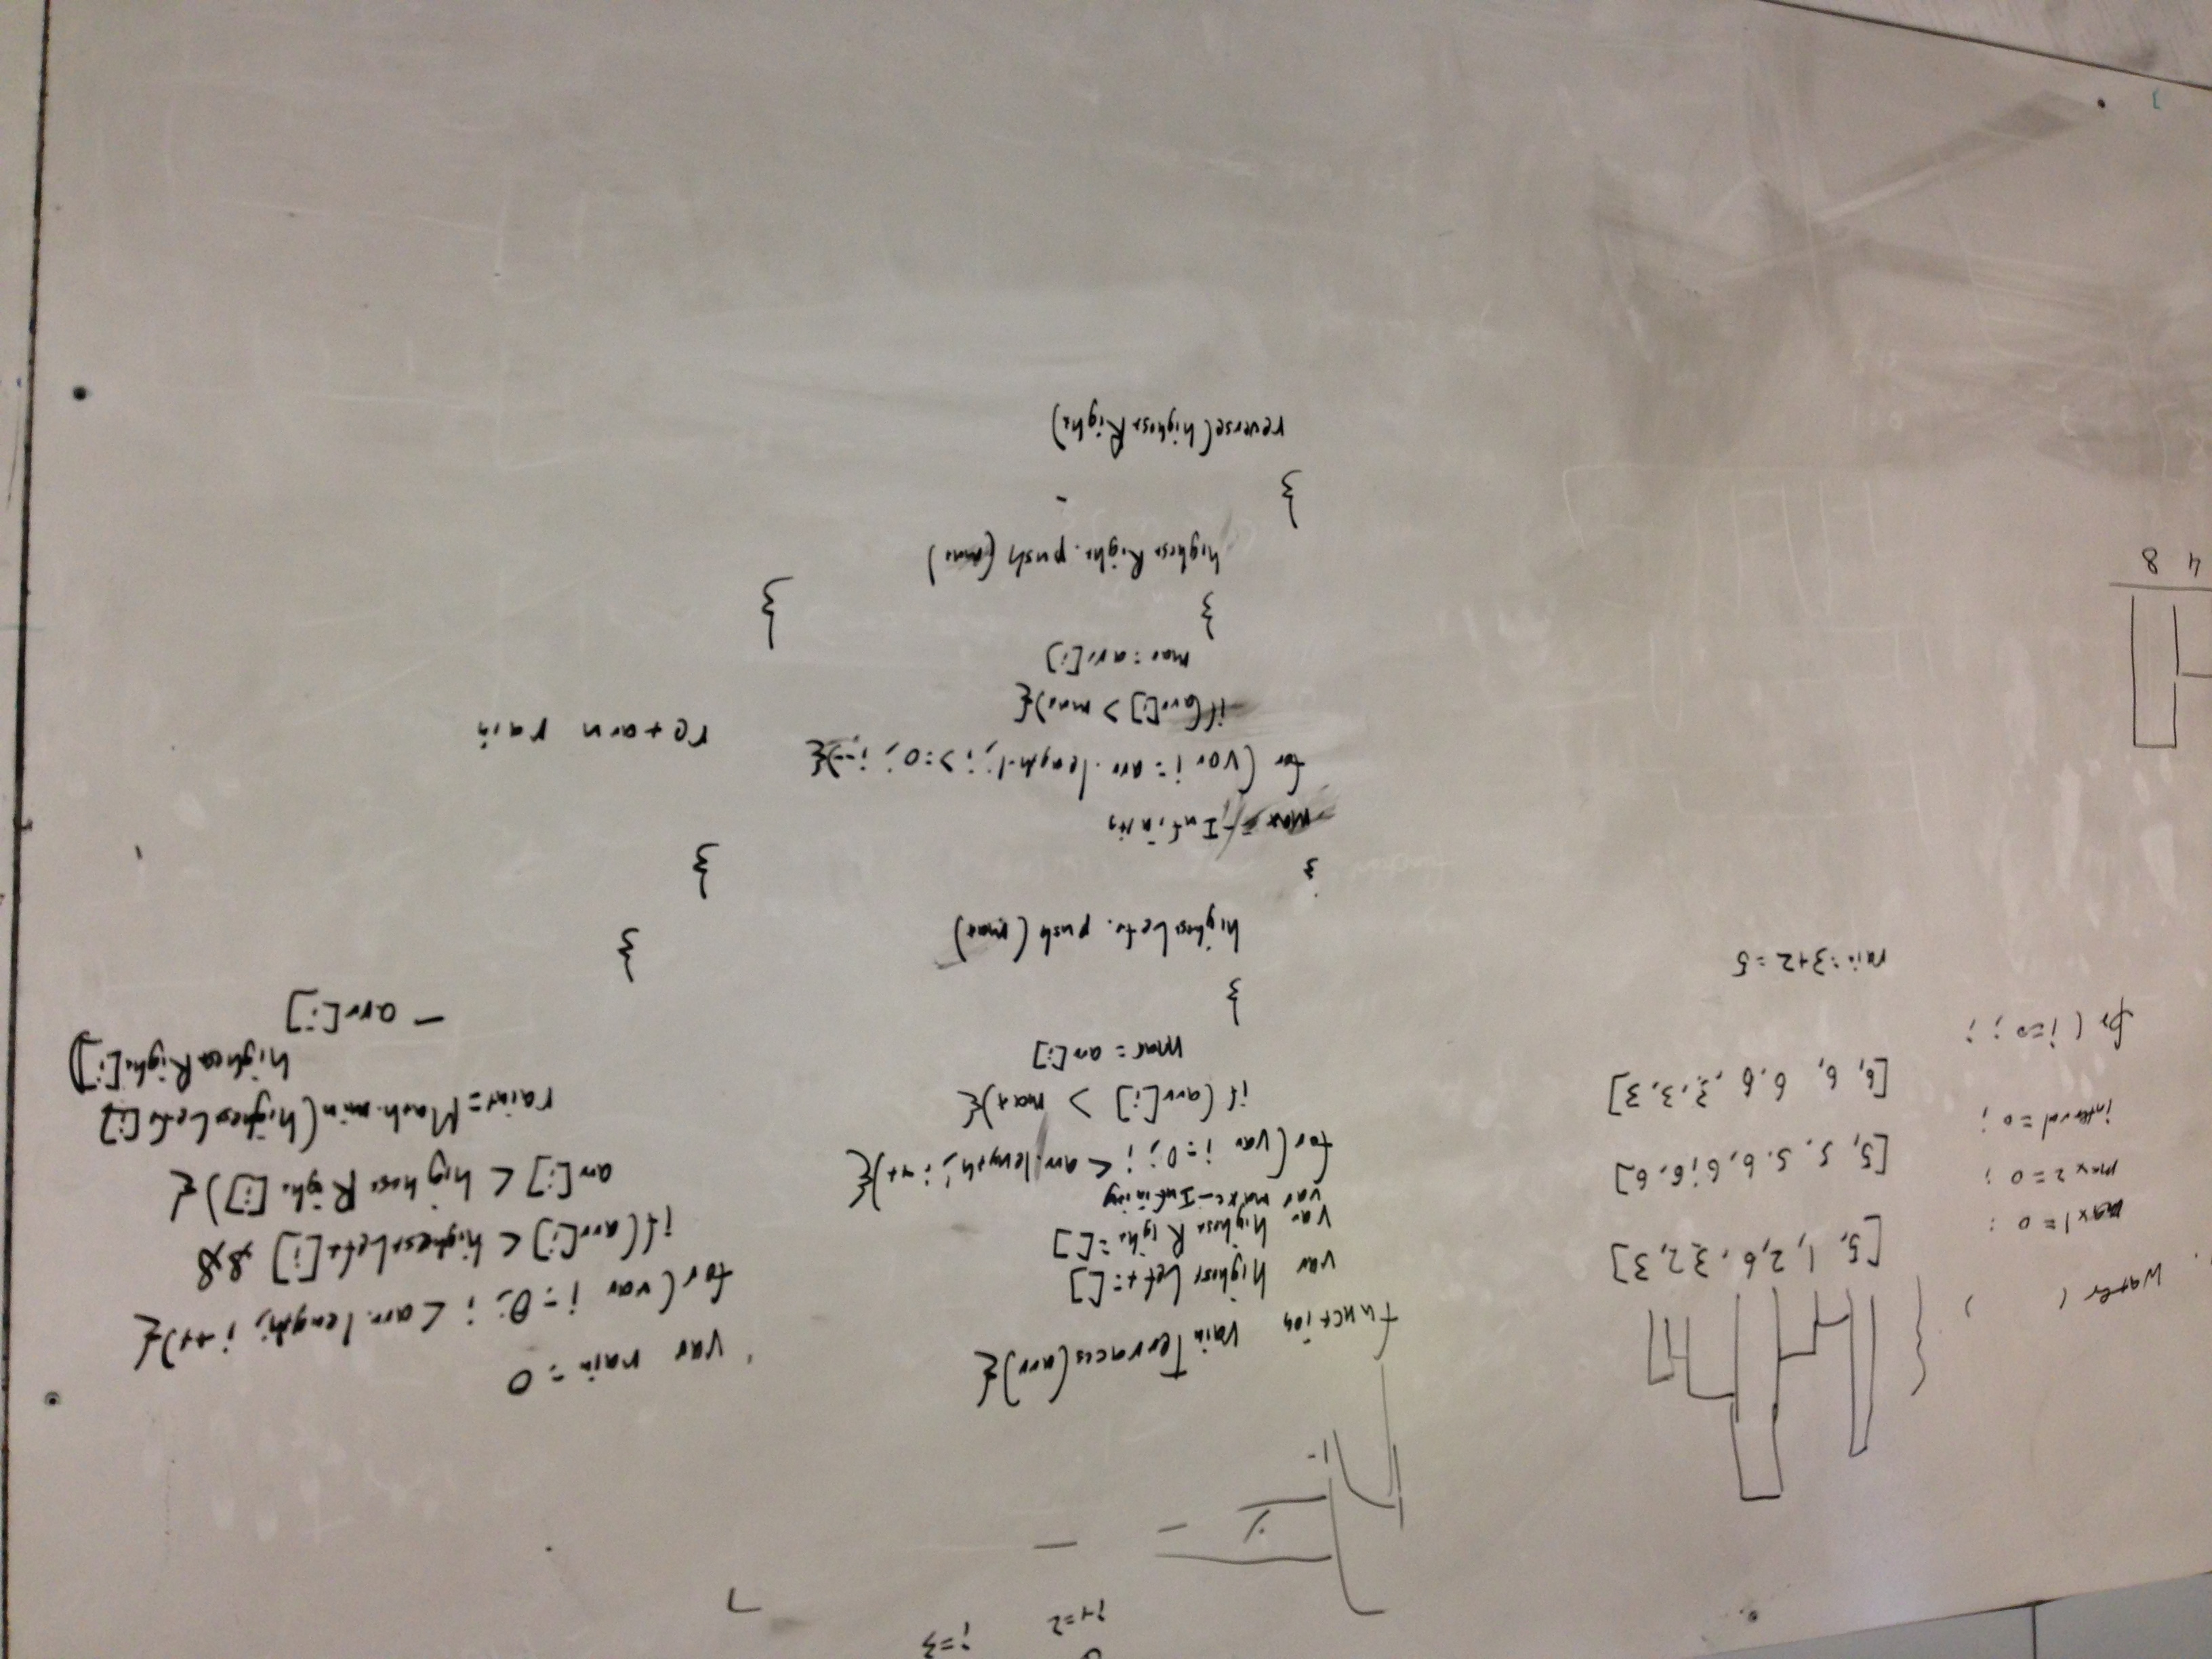 i-1=2 i=3
water ( )
max1 = 0 ;
max2 = 0 ;
interval = 0 ;
for ( i=0 ; ;
[5, 1, 2, 6, 3, 2, 3]
[5, 5, 5, 6, 6, 6, 6]
[6, 6, 6, 6, 3, 3, 3]
rain = 3+2 = 5
4 8
function rainTerraces(arr){
var highestLeft = []
var highestRight = []
var max = -Infinity
for(var i=0; i < arr.length; i++){
if (arr[i] > max){
max = arr[i]
}
highestLeft.push(max)
}
max = -Infinity
for (var i = arr.length-1; i >= 0; i--){
if(arr[i] > max){
max = arr[i]
}
highestRight.push(max)
}
reverse(highestRight)
var rain = 0
for(var i=0; i < arr.length; i++){
if(arr[i] < highestLeft[i] &&
arr[i] < highestRight[i]){
rain += Math.min(highestLeft[i]
highestRight[i])
- arr[i]
}
}
return rain
}